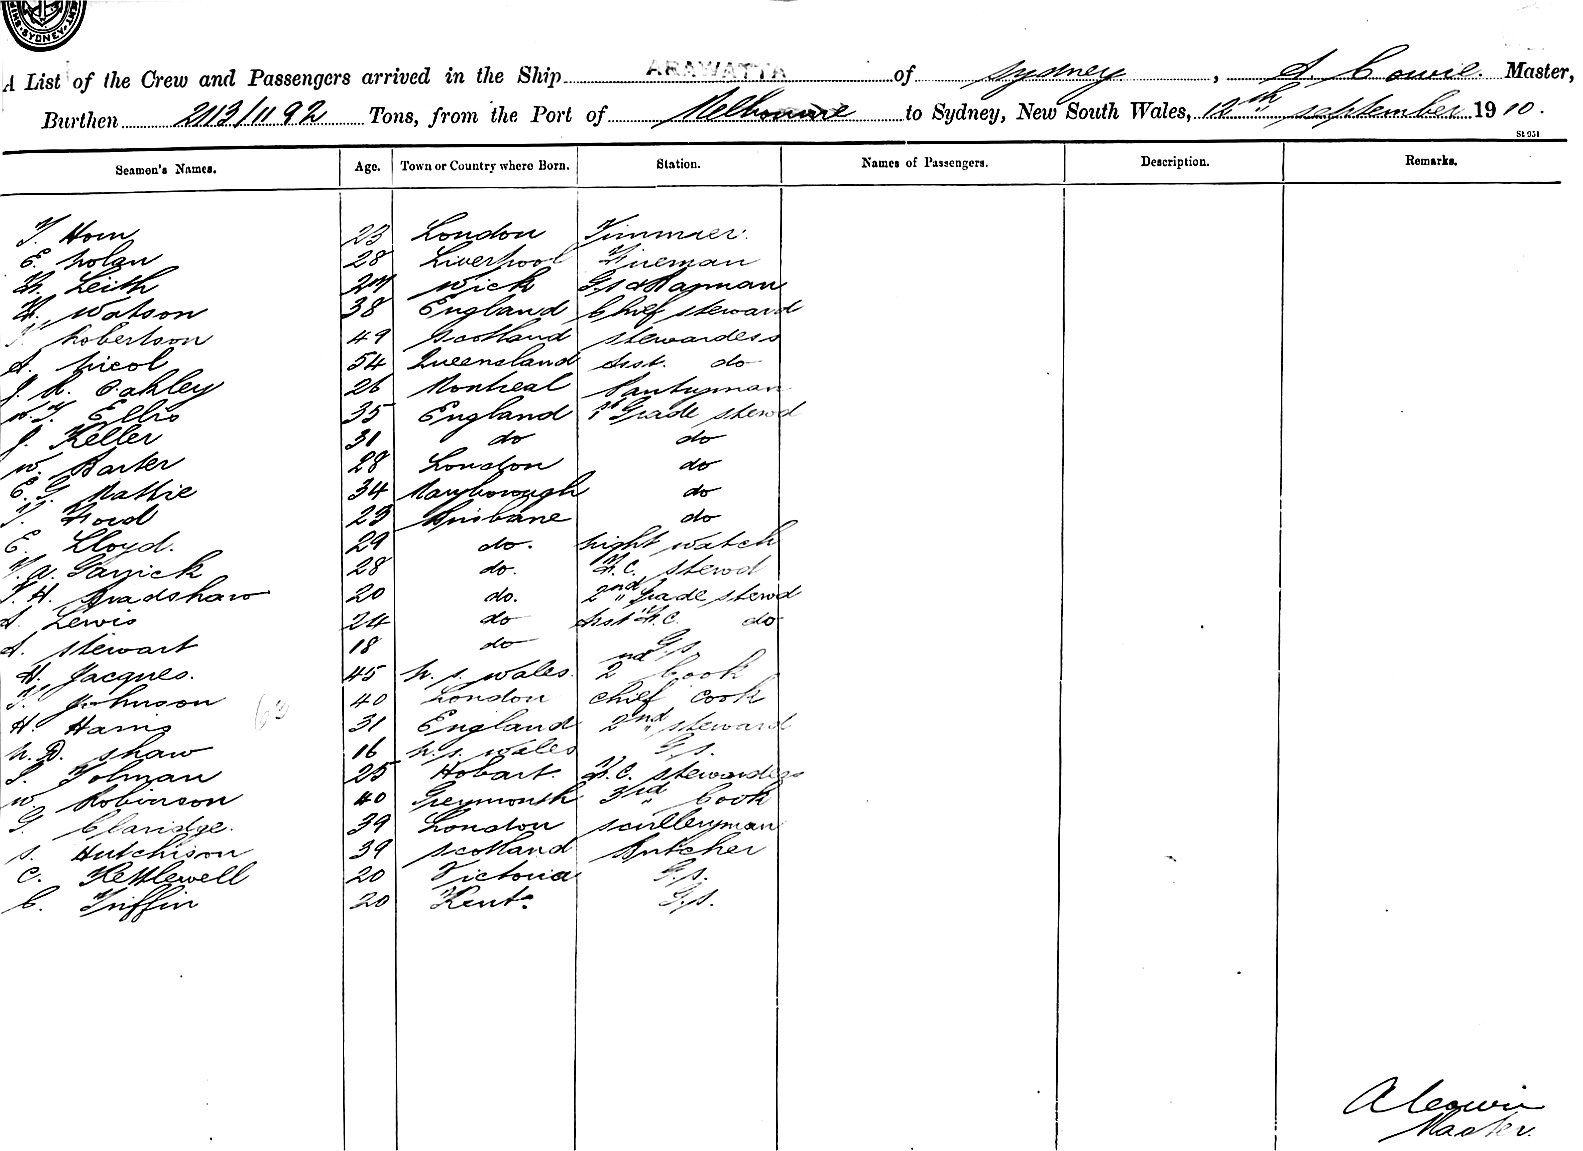 SYDNEY
A List of the Crew and Passengers arrived in the Ship ARAWATTA of Sydney, A. Cowie. Master,
Burthen 2113/1192 Tons, from the Port of Melbourne to Sydney, New South Wales, 12th September 1910.
St 951
Seamen's Names. Age. Town or Country where Born. Station. Names of Passengers. Description. Remarks.
T. Horn 23 London Trimmer.
E. Nolan 28 Liverpool Fireman
Leith 27 Wick G.S.
H. Watson 38 England Chief Steward
Robertson 49 Scotland Stewardess
A. Nicol 54 Queensland Asst. do
J. R. Oakley 26 Montreal Pantryman
W. T. Ellis 35 England 1st Grade Stewd
J. Keller 31 do do
W. Barter 28 London do
E. G. Mathie 34 Maryborough do
T. Ford 23 Brisbane do
E. Lloyd. 29 do. Night Watch
Garrick 28 do. F.C. Stewd
T. H. Bradshaw 20 do. 2nd Grade Stewd
A. Lewis 24 do Asst F.C. do
A. Stewart 18 do G.S.
H. Jacques. 45 N. S. Wales. 2nd Cook
T. Johnson 40 London Chief Cook
63
H. Harris 31 England 2nd Steward
N. D. Shaw 16 N. S. Wales G.S.
S. Tolman 25 Hobart. F.C. Stewardess
W. Robinson 40 Greymouth 3rd Cook
G. Claridge. 39 London Sculleryman
S. Hutchison 39 Scotland Butcher
C. Kettlewell 20 Victoria G.S.
C. Triffin 20 Kent. G.S.
A Cowie
Master.